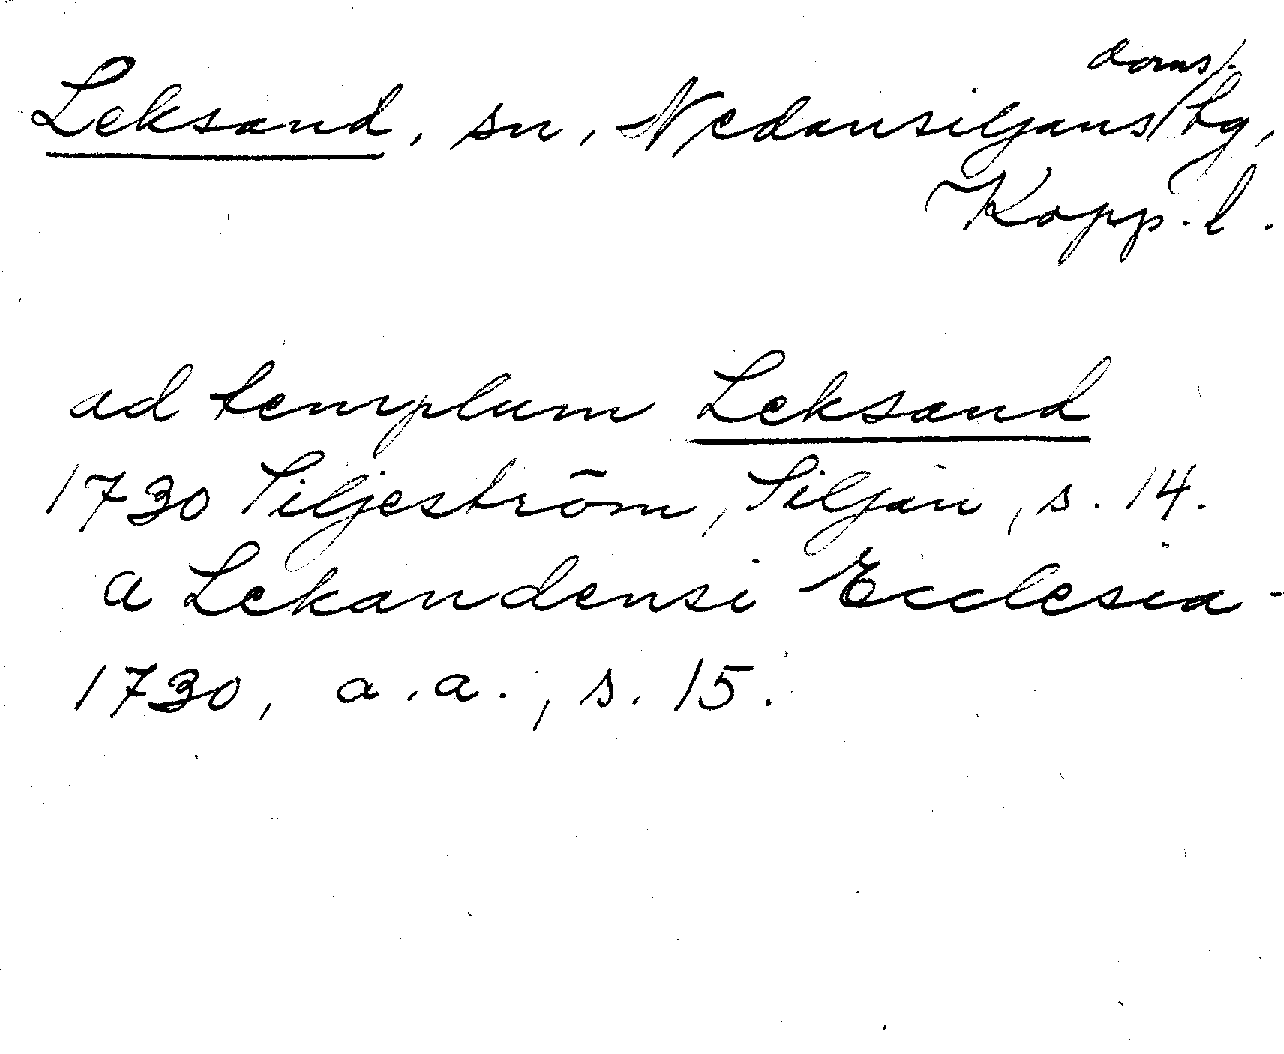 Leksand, sn, Nedansiljans doms/ tg,
Kopp. l.
ad templum Leksand
1730 Siljeström, Siljan, s. 14.
a Lekandensi Ecclesia -
1730, a.a., s. 15.